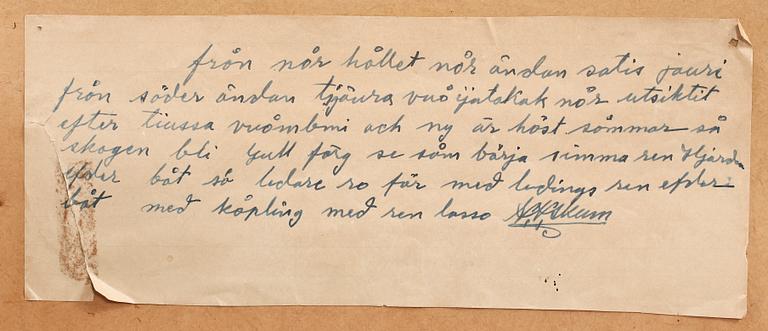 från nór hållet nór ändan satis jauri
från söder ändan tjäura vuoijatakak nór utsiktit
efter tiussa vuómbmi och ny är höst sómmar så
skogen bli gull färg se som börja simma ren Hjärda
efder båt så ledare ro får med lednings ren efder
båt med kópling med ren lasso